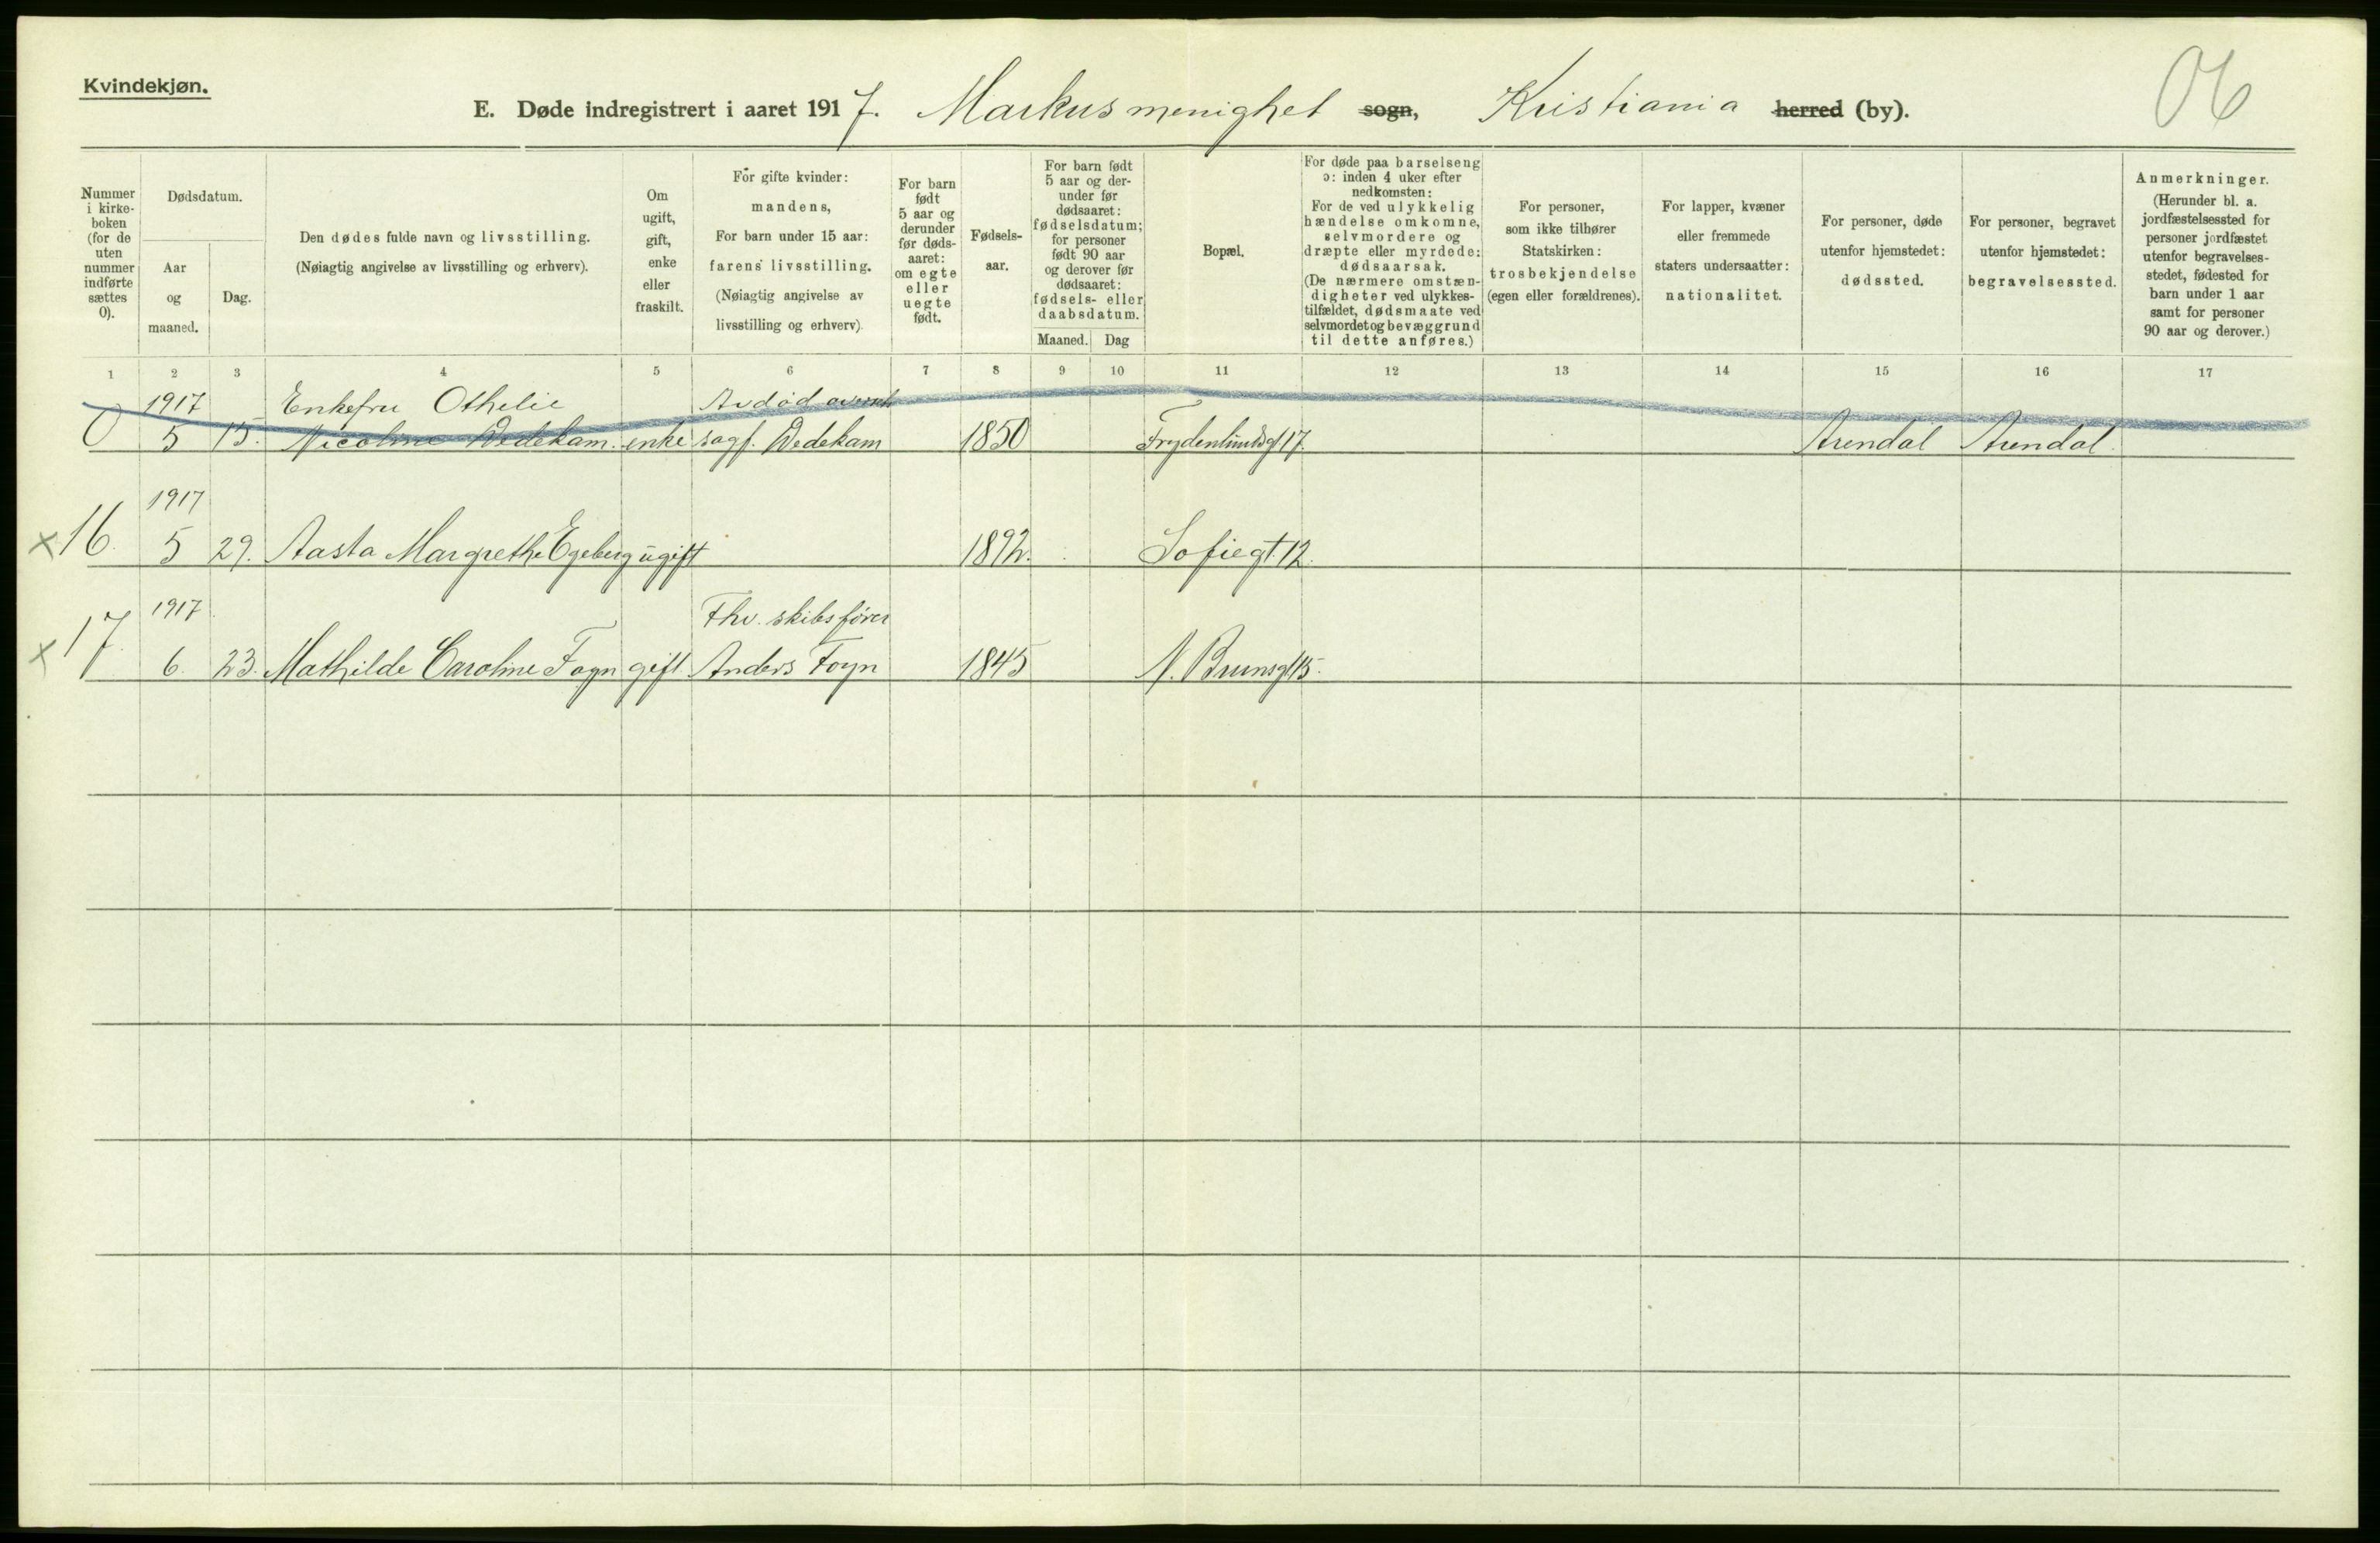 Kvindekjøn.
E. Døde indregistrert i aaret 1917. Markus menighet sogn, Kristiania herred (by).
06
Nummer i kirke-boken (for de uten nummer indførte sættes 0).
Dødsdatum.
Aar og maaned.
Dag.
Den dødes fulde navn og livsstilling.
(Nøiagtig angivelse av livsstilling og erhverv).
Om ugift, gift, enke eller fraskilt.
For gifte kvinder: mandens,
For barn under 15 aar: farens livsstilling.
(Nøiagtig angivelse av livsstilling og erhverv)
For barn født 5 aar og derunder før døds-aaret: om egte eller uegte født.
Fødsels-aar.
For barn født 5 aar og der-under før dødsaaret: fødselsdatum; for personer født 90 aar og derover før dødsaaret: fødsels- eller daabsdatum.
Maaned. Dag
Bopæl.
For døde paa barselseng ɔ: inden 4 uker efter nedkomsten:
For de ved ulykkelig hændelse omkomne, selvmordere og dræpte eller myrdede: dødsaarsak.
(De nærmere omstæn-digheter ved ulykkes-tilfældet, dødsmaate ved selvmordet og bevæggrund til dette anføres.)
For personer, som ikke tilhører Statskirken: trosbekjendelse (egen eller forældrenes).
For lapper, kvæner eller fremmede staters undersaatter: nationalitet.
For personer, døde utenfor hjemstedet: dødssted.
For personer, begravet utenfor hjemstedet: begravelsessted.
Anmerkninger.
(Herunder bl. a. jordfæstelsessted for personer jordfæstet utenfor begravelses-stedet, fødested for barn under 1 aar samt for personer 90 aar og derover.)
1 2 3 4 5 6 7 8 9 10 11 12 13 14 15 16 17
1917 Enkefru Othelie Avdød
0 5 15. Nicoline Wedekam. enke sagf. Wedekam 1850 Frydenlundsgt 17. Arendal Arendal.
1917
x 16. 5 29. Aasta Margrethe Egeberg ugift 1892. Sofiegt. 12.
1917 Fhv. skibsfører
x 17. 6. 23. Mathilde Caroline Foyn gift. Anders Foyn 1845 N. Brunsgt 15.